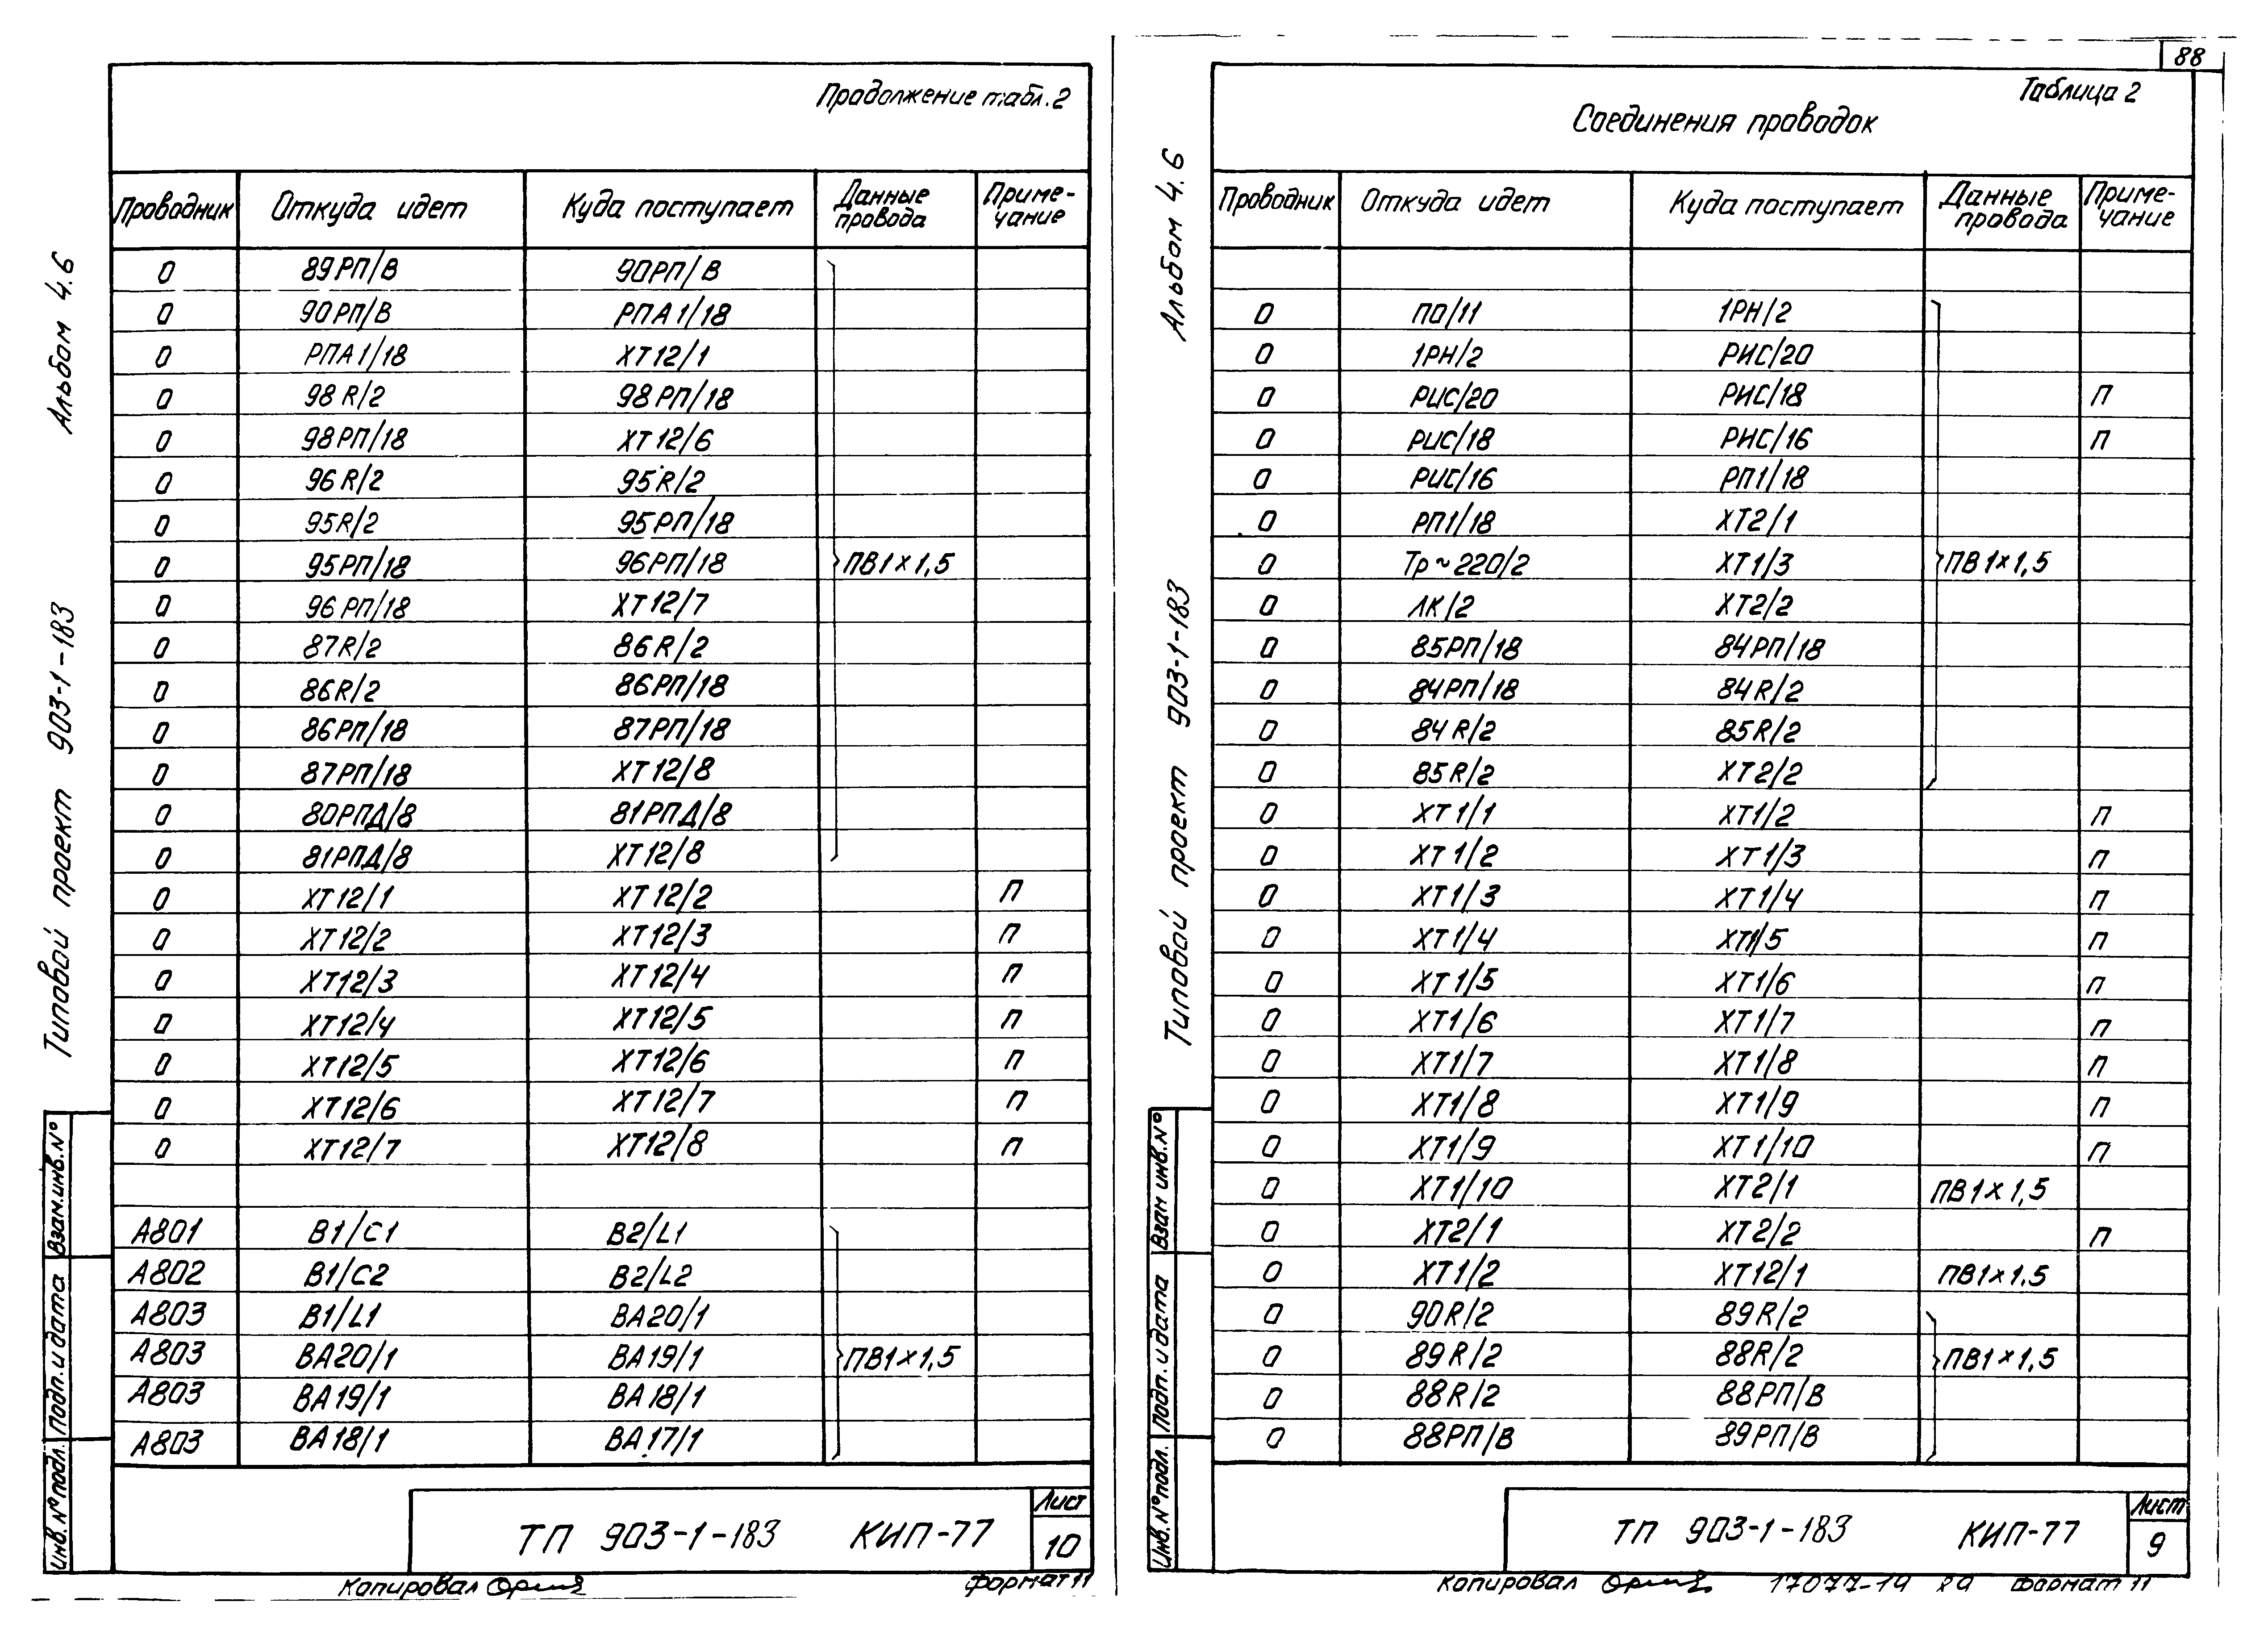 Продолжение табл.2
Проводник Откуда идет Куда поступает Данные провода Приме-чание
0 89РП/В 90РП/В
0 90РП/В РПА1/18
0 РПА1/18 ХТ12/1
0 98R/2 98РП/18
0 98РП/18 ХТ12/6
0 96R/2 95R/2
0 95R/2 95РП/18
0 95РП/18 96РП/18 ПВ1×1,5
0 96РП/18 ХТ12/7
0 87R/2 86R/2
0 86R/2 86РП/18
0 86РП/18 87РП/18
0 87РП/18 ХТ12/8
0 80РПД/8 81РПД/8
0 81РПД/8 ХТ12/8
0 ХТ12/1 ХТ12/2 П
0 ХТ12/2 ХТ12/3 П
0 ХТ12/3 ХТ12/4 П
0 ХТ12/4 ХТ12/5 П
0 ХТ12/5 ХТ12/6 П
0 ХТ12/6 ХТ12/7 П
0 ХТ12/7 ХТ12/8 П
А801 В1/С1 В2/L1
А802 В1/С2 В2/L2
А803 В1/L1 ВА20/1
А803 ВА20/1 ВА19/1 ПВ1×1,5
А803 ВА19/1 ВА18/1
А803 ВА18/1 ВА17/1
ТП 903-1-183 КИП-77
Лист
10
Копировал
Формат 11
Альбом 4.6
Типовой проект 903-1-183
Взам.инв.№
Подп. и дата
Инв.№ подл.
88
Таблица 2
Соединения проводок
Проводник Откуда идет Куда поступает Данные провода Приме-чание
0 ПО/11 1РН/2
0 1РН/2 РИС/20
0 РИС/20 РИС/18 П
0 РИС/18 РИС/16 П
0 РИС/16 РП1/18
0 РП1/18 ХТ2/1
0 Тр~220/2 ХТ1/3 ПВ1×1,5
0 ЛК/2 ХТ2/2
0 85РП/18 84РП/18
0 84РП/18 84R/2
0 84R/2 85R/2
0 85R/2 ХТ2/2
0 ХТ1/1 ХТ1/2 П
0 ХТ1/2 ХТ1/3 П
0 ХТ1/3 ХТ1/4 П
0 ХТ1/4 ХТ1/5 П
0 ХТ1/5 ХТ1/6 П
0 ХТ1/6 ХТ1/7 П
0 ХТ1/7 ХТ1/8 П
0 ХТ1/8 ХТ1/9 П
0 ХТ1/9 ХТ1/10 П
0 ХТ1/10 ХТ2/1 ПВ1×1,5
0 ХТ2/1 ХТ2/2 П
0 ХТ1/2 ХТ12/1 ПВ1×1.5
0 90R/2 89R/2
0 89R/2 88R/2 ПВ1×1,5
0 88R/2 88РП/В
0 88РП/В 89РП/В
ТП 903-1-183 КИП-77
Лист
9
Копировал 17077-19 89 Формат 11
Альбом 4.6
Типовой проект 903-1-183
Взам инв.№
Подп. и дата
Инв.№ подл.